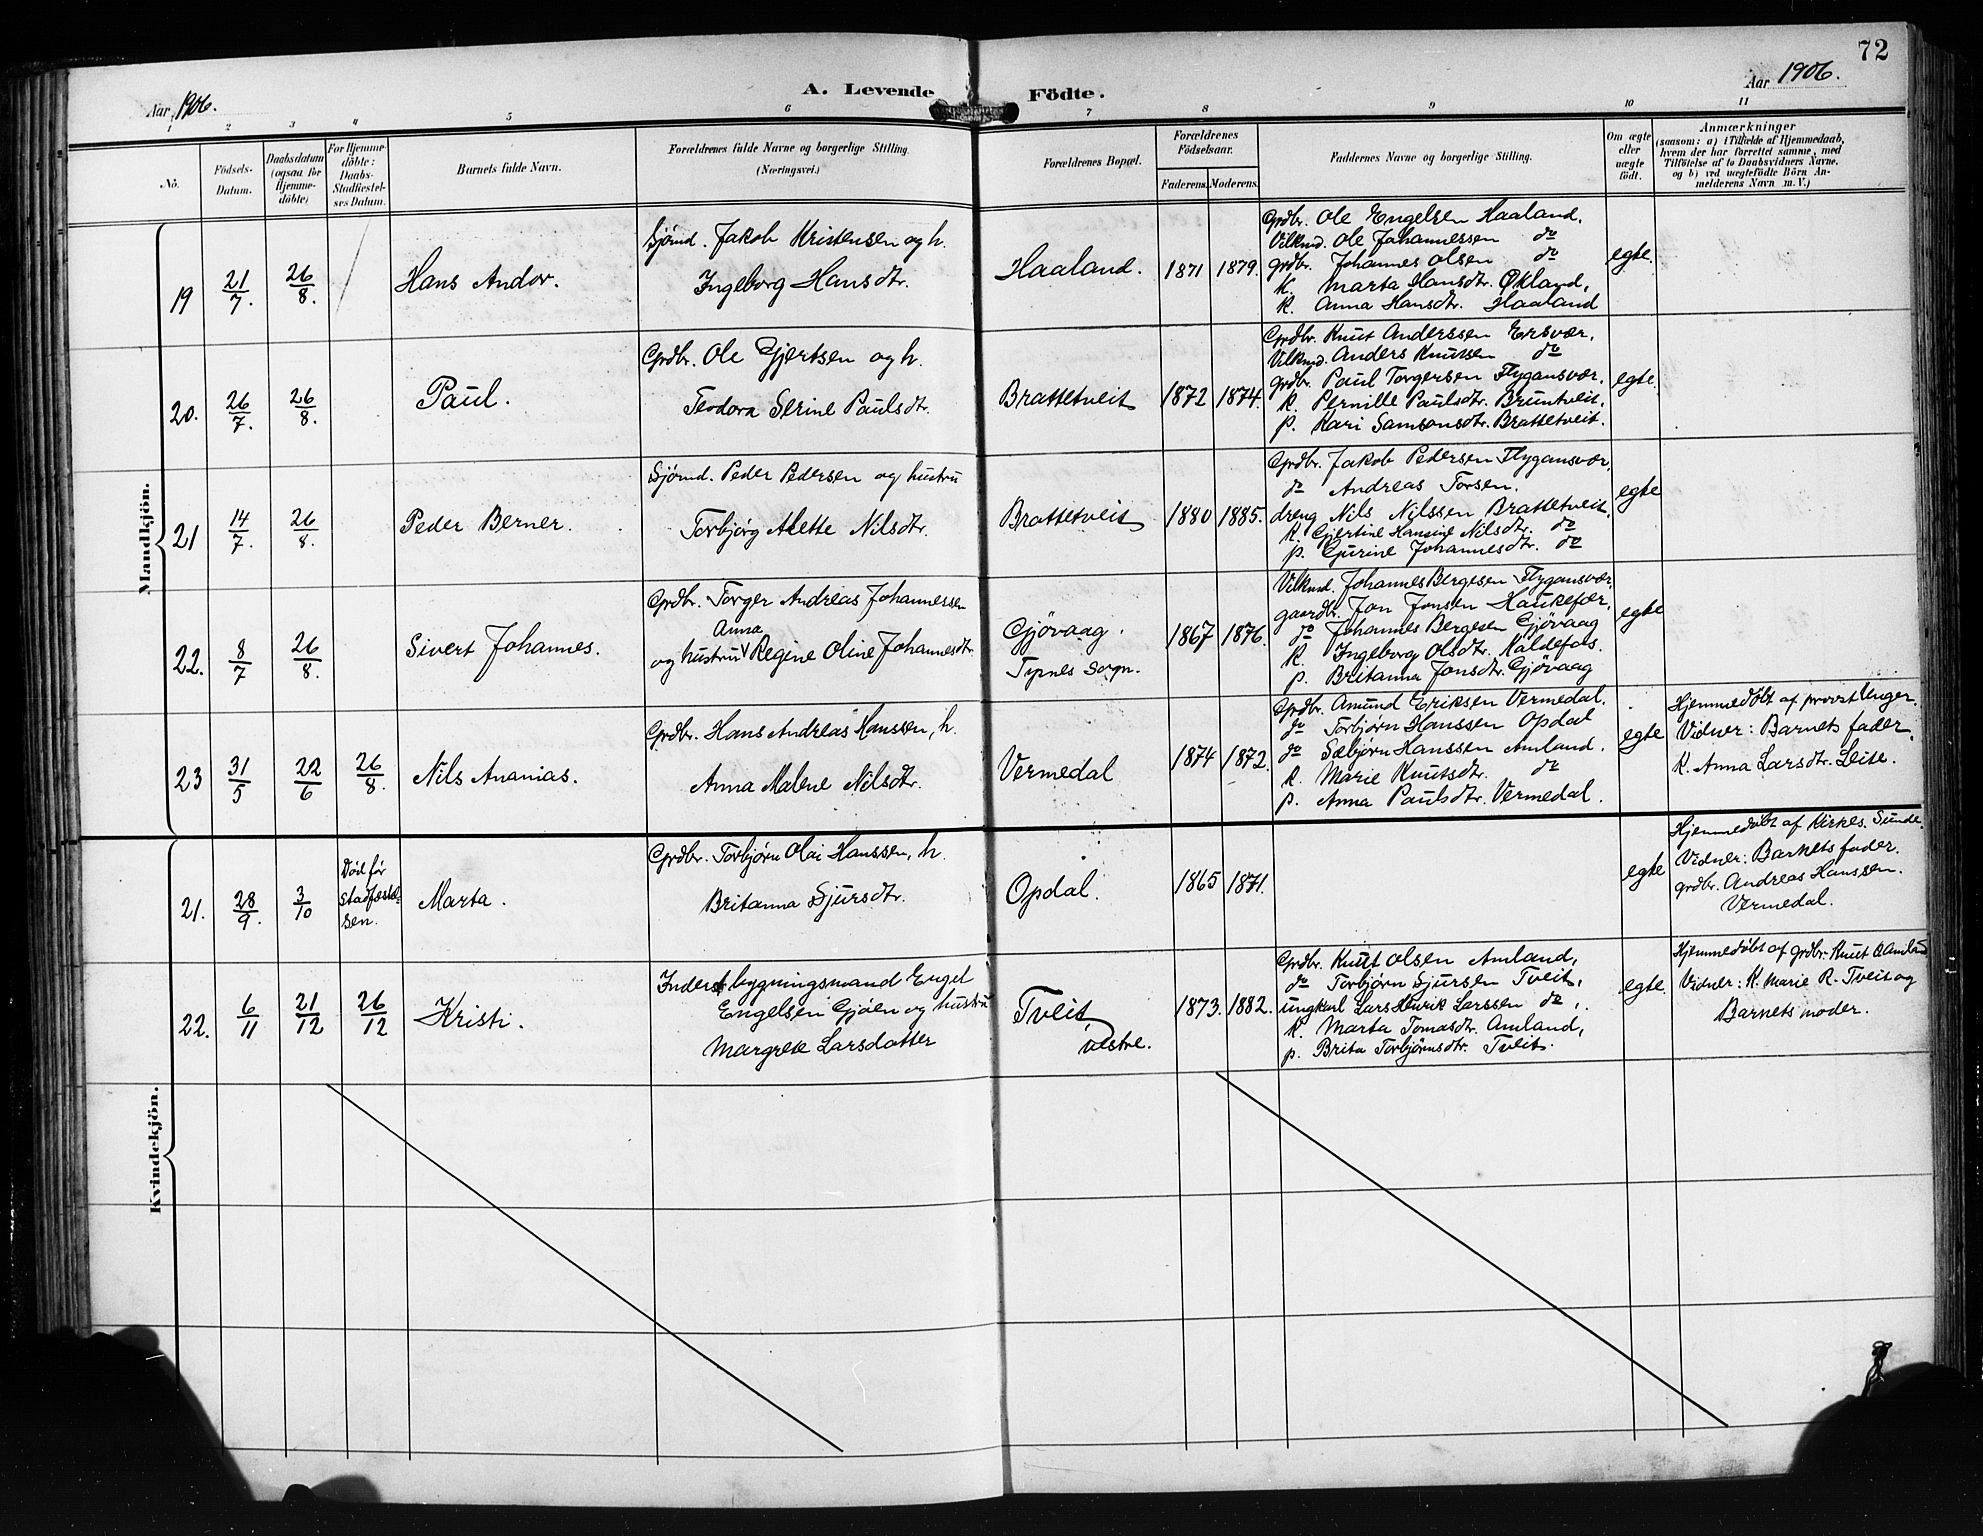 72
Aar 1906.
A. Levende Födte.
Aar 1906.
1 2 3 4 5 6 7 8 9 10 11
No.
Födsels-
Datum.
Daabsdatum
(ogsaa for
Hjemme-
döbte)
For Hjemme-
döbte:
Daabs-
Stadfæstel-
ses Datum.
Barnets fulde Navn.
Forældrenes fulde Navne og borgerlige Stilling
(Næringsvei.)
Forældrenes Bopæl.
Forældrenes
Födselsaar.
Faderens. Moderens.
Faddernes Navne og borgerlige Stilling.
Om ægte
eller
uægte
födt.
Anmærkninger
(saasom: a) i Tilfælde af Hjemmedaab,
hvem der har forrettet samme, med
Tilföielse af to Daabsvidners Navne,
og b) ved uægtefödte Börn An-
melderens Navn m. V.)
Mandkjön.
19 21/7. 26/8. Hans Andor.
Sjømd. Jakob Kristensen og h.
Ingeborg Hansdtr.
Haaland. 1871 1879.
Grdbr. Ole Engelsen Haaland.
Vilkmd. Ole Johannessen do
grdbr. Johannes Olsen do
K. Marta Hansdtr. Økland,
K. Anna Hansdtr. Haaland
egte.
20. 26/7. 26/8. Paul.
Grdbr. Ole Gjertsen og h.
Teodora Serine Paulsdtr.
Brattetveit 1872 1874.
Grdbr. Knut Anderssen Ersvær.
Vilkmd. Anders Knutsen do
grdbr. Paul Torgersen Flygansvær.
K. Pernille Paulsdtr. Bruntveit.
p. Kari Samsonsdtr. Brattetveit.
egte.
21 14/7. 26/8. Peder Berner.
Sjømd. Peder Pedersen og hustru
Torbjørg Alette Nilsdtr.
Brattetveit 1880 1885.
Grdbr. Jakob Pedersen Flygansvær,
do Andreas Torsen.
dreng Nils Nilssen Brattetveit.
K. Gjertine Hansine Nilsdtr. do
p. Gurine Johannesdtr. do
egte
22. 8/7 26/8. Sivert Johannes.
Grdbr. Torger Andreas Johannessen
Anna
og hustru Regine Oline Johannesdtr.
Gjøvaag.
Tysnes sogn.
1867 1876.
Vilkmd. Johannes Bergesen Flygansvær,
gaardbr. Jon Jonsen Haukefær,
do Johannes Bergesen Gjøvaag
K. Ingeborg Olsdtr. Kaldefos.
p. Britanna Jonsdtr. Gjøvaag
egte
23 31/5 22/6 26/8. Nils Ananias.
Grdbr. Hans Andreas Hanssen, h.
Anna Malene Nilsdtr.
Vermedal 1874 1872.
Grdbr. Amund Eriksen Vermedal.
do Torbjørn Hanssen Opdal
do Sæbjørn Hanssen Amland.
K. Marie Knutsdtr. do
p. Anna Paulsdtr. Vermedal.
egte
Hjemmedøbt af provst
Vidner: Barnets fader,
K. Anna Larsdtr. Leite.
Kvindekjön.
21. 28/9. 3/10
Død før
stadfæstel-
sen.
Marta.
Grdbr. Torbjørn Olai Hanssen, h.
Britanna Sjursdtr.
Opdal. 1865 1871.
egte
Hjemmedøbt af Kirkes. Sunde.
Vidner: Barnets fader.
grdbr. Andreas Hanssen.
Vermedal.
22. 6/11 21/12 26/12 Kristi.
Inderst bygningsmand Engel
Engelsen Gjøen og hustru
Margrete Larsdatter
Tveit,
vestre.
1873. 1882.
Grdbr. Knut Olsen Amland,
do Torbjørn Sjursen Tveit,
ungkarl Lars Henrik Larssen do,
K. Marta Tomasdtr. Amland,
p. Brita Torbjørnsdtr. Tveit.
egte.
Hjemmedøbt af grdbr. Knut O Amland
Vidner: K. Marie K. Tveit og
Barnets moder.